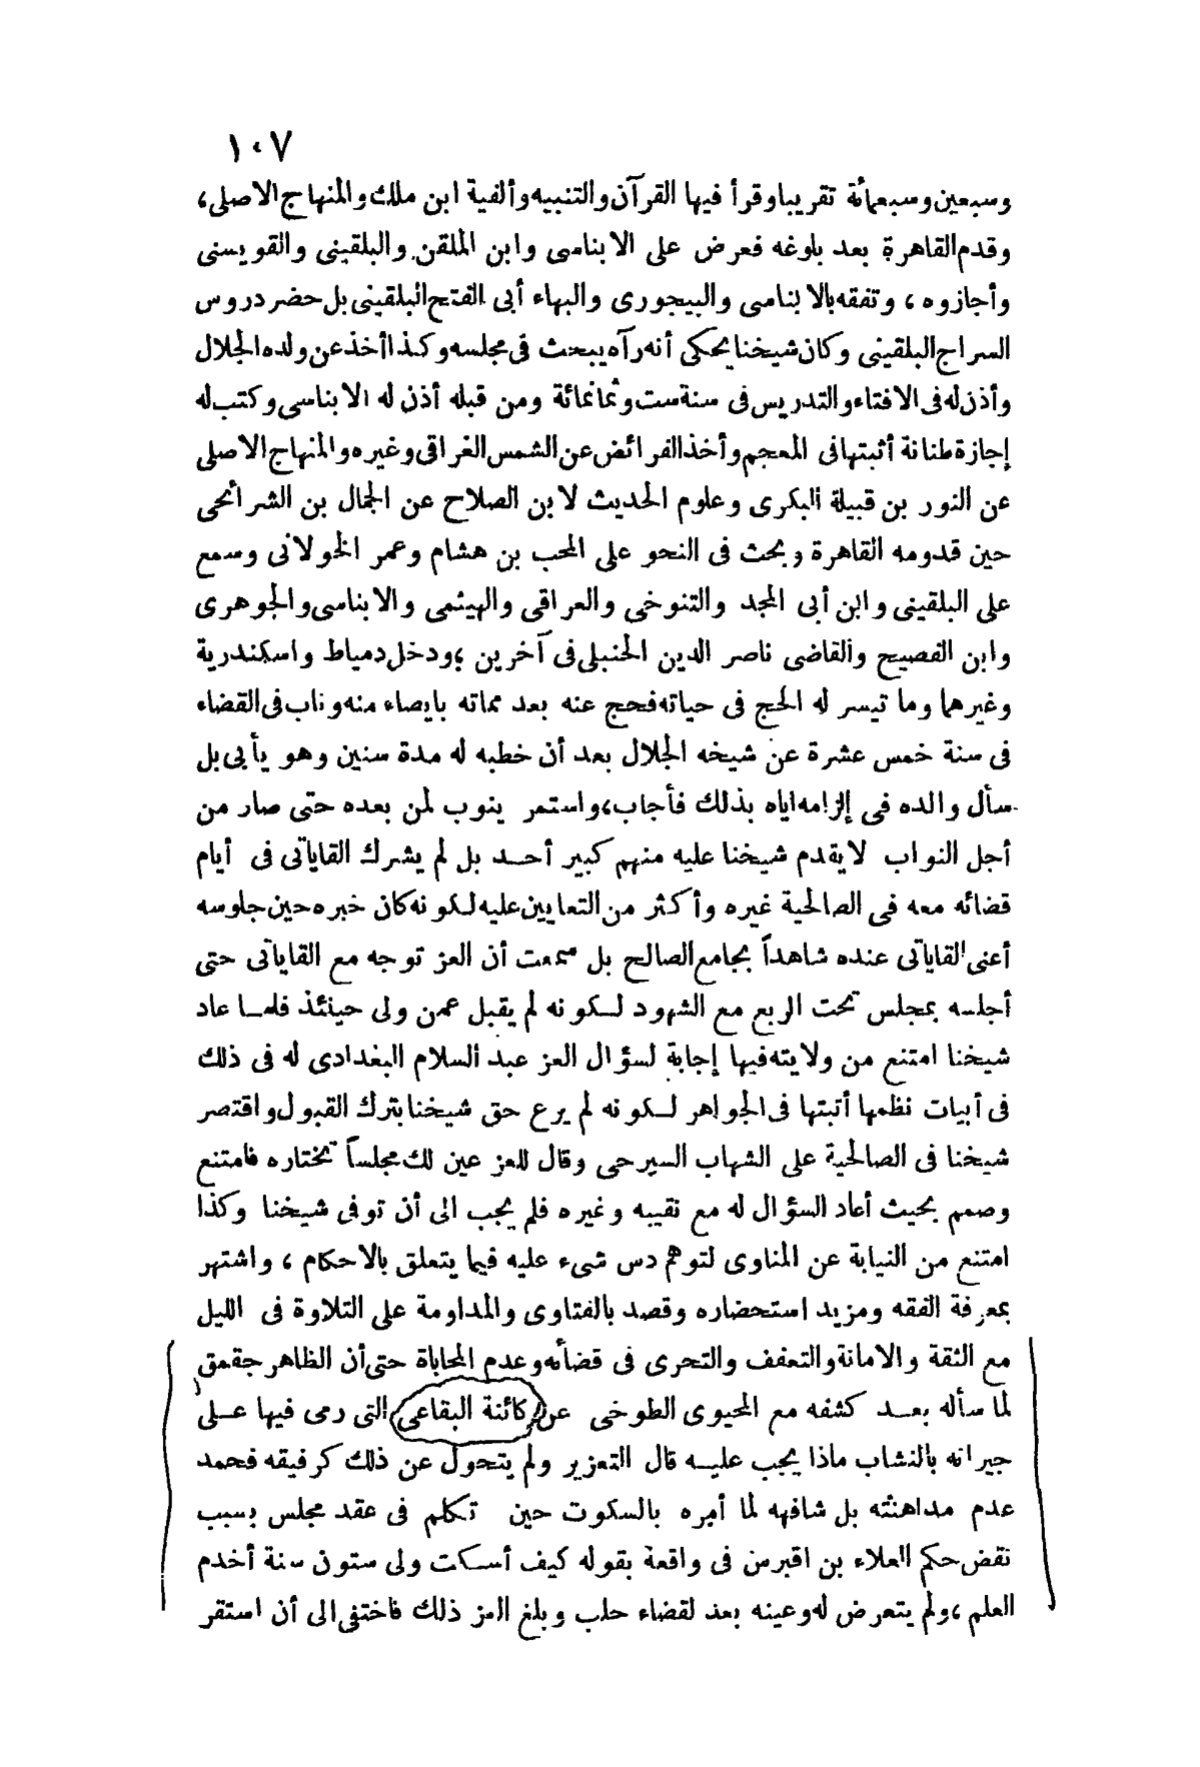 ١٠٧
وسبعين وسبعمائة تقريبا وقرأ فيها القرآن والتنبيه وألفية ابن ملك والمنهاج الاصلى،
وقدم القاهرة بعد بلوغه فعرض على الابناسى وابن الملقن والبلقينى والقويسنى
وأجازوه ، وتفقه بالابناسى والبيجورى والبهاء أبى الفتح البلقينى بل حضر دروس
السراج البلقينى وكان شيخنا يحكى أنه رآه يبحث فى مجلسه وكذا أخذ عن ولده الجلال
وأذن له فى الافتاء والتدريس فى سنة ست وثمانمائة ومن قبله أذن له الابناسى وكتب له
إجازة طنانة أثبتها فى المعجم وأخذ الفرائض عن الشمس الغراقى وغيره والمنهاج الاصلى
عن النور بن قبيلة البكرى وعلوم الحديث لابن الصلاح عن الجمال بن الشرائحى
حين قدومه القاهرة وبحث فى النحو على المحب بن هشام وعمر الخولانى وسمع
على البلقينى وابن أبى المجد والتنوخى والعراقى والهيثمى والابناسى والجوهرى
وابن الفصيح والقاضى ناصر الدين الحنبلى فى آخرين ؛ ودخل دمياط واسكندرية
وغيرهما وما تيسر له الحج فى حياته فحج عنه بعد مماته بايصاء منه وناب فى القضاء
فى سنة خمس عشرة عن شيخه الجلال بعد أن خطبه له مدة سنين وهو يأبى بل
سأل والده فى إلزامه اياه بذلك فأجاب، واستمر ينوب لمن بعده حتى صار من
أجل النواب لا يقدم شيخنا عليه منهم كبير أحد بل لم يشرك القاياتى فى أيام
قضائه معه فى الصالحية غيره وأكثر من التعايين عليه لكونه كان خبره حين جلوسه
أعنى القاياتى عنده شاهداً بجامع الصالح بل سمعت أن العز توجه مع القاياتى حتى
أجلسه بمجلس تحت الربع مع الشهود لكونه لم يقبل عمن ولى حينئذ فلما عاد
شيخنا امتنع من ولايته فيها إجابة لسؤال العز عبد السلام البغدادى له فى ذلك
فى أبيات نظمها أثبتها فى الجواهر لكونه لم يرع حق شيخنا بترك القبول واقتصر
شيخنا فى الصالحية على الشهاب السيرجى وقال للعز عين لك مجلساً تختاره فامتنع
وصمم بحيث أعاد السؤال له مع نقيبه وغيره فلم يجب الى أن توفى شيخنا وكذا
امتنع من النيابة عن المناوى لتوهم دس شىء عليه فيما يتعلق بالاحكام ، واشتهر
بمعرفة الفقه ومزيد استحضاره وقصد بالفتاوى والمداومة على التلاوة فى الليل
مع الثقة والامانة والتعفف والتحرى فى قضائه وعدم المحاباة حتى أن الظاهر جقمق
لما سأله بعد كشفه مع المحيوى الطوخى عن كائنة البقاعى التى رمى فيها على
جيرانه بالنشاب ماذا يجب عليه قال التعزير ولم يتحول عن ذلك كرفيقه فحمد
عدم مداهنته بل شافهه لما أمره بالسكوت حين تكلم فى عقد مجلس بسبب
نقض حكم العلاء بن اقبرس فى واقعة بقوله كيف أسكت ولى ستون سنة أخدم
العلم ، ولم يتعرض له وعينه بعد لقضاء حلب وبلغ العز ذلك فاختفى الى أن استقر